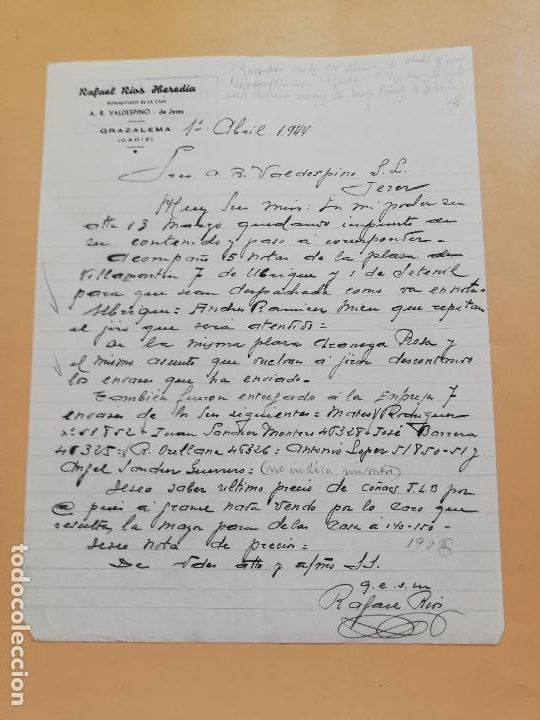 Rafael Ríos Heredia
REPRESENTANTE DE LA CASA
A. R. VALDESPINO - de Jerez
GRAZALEMA
(CADIZ)
1º Abril 1944
Sres A. R. Valdespino S.L.
Jerez
Muy Sres mios: En mi poder su
atta 13 Marzo quedando impuesto de
su contenido y paso a corresponder -
Acompaño 5 notas de la plaza de
Villamartin 7 de Ubrique y 1 de Setenil
para que sean despachada como va en nota -
Ubrique = Andres Ramirez que repitan
el jiro que será atendido =
De la misma plaza Rosa y
el mismo asunto que vuelvan a jirar descontando
los envases que ha enviado -
También fueron entregado a la Empresa 7
envases de los Sres siguientes = Mateo Rodriguez
51852 - Juan Sanchez Montero 46328 - José Barrera
46325 - R. Orellana 46326 = Antonio Lopez 51850 - 51 y
Angel Sanchez Guerrero = (no indica numero)
Deseo saber ultimo precio de coñac por
@ pues a granel nada vendo por lo caro que
resulta, la mayor parte de las casa a 140-150 -
Deseo nota de precios = 190 @
De Vdes atto y afmo S.S.
q.e.s.m
Rafael Rios
todocoleccion